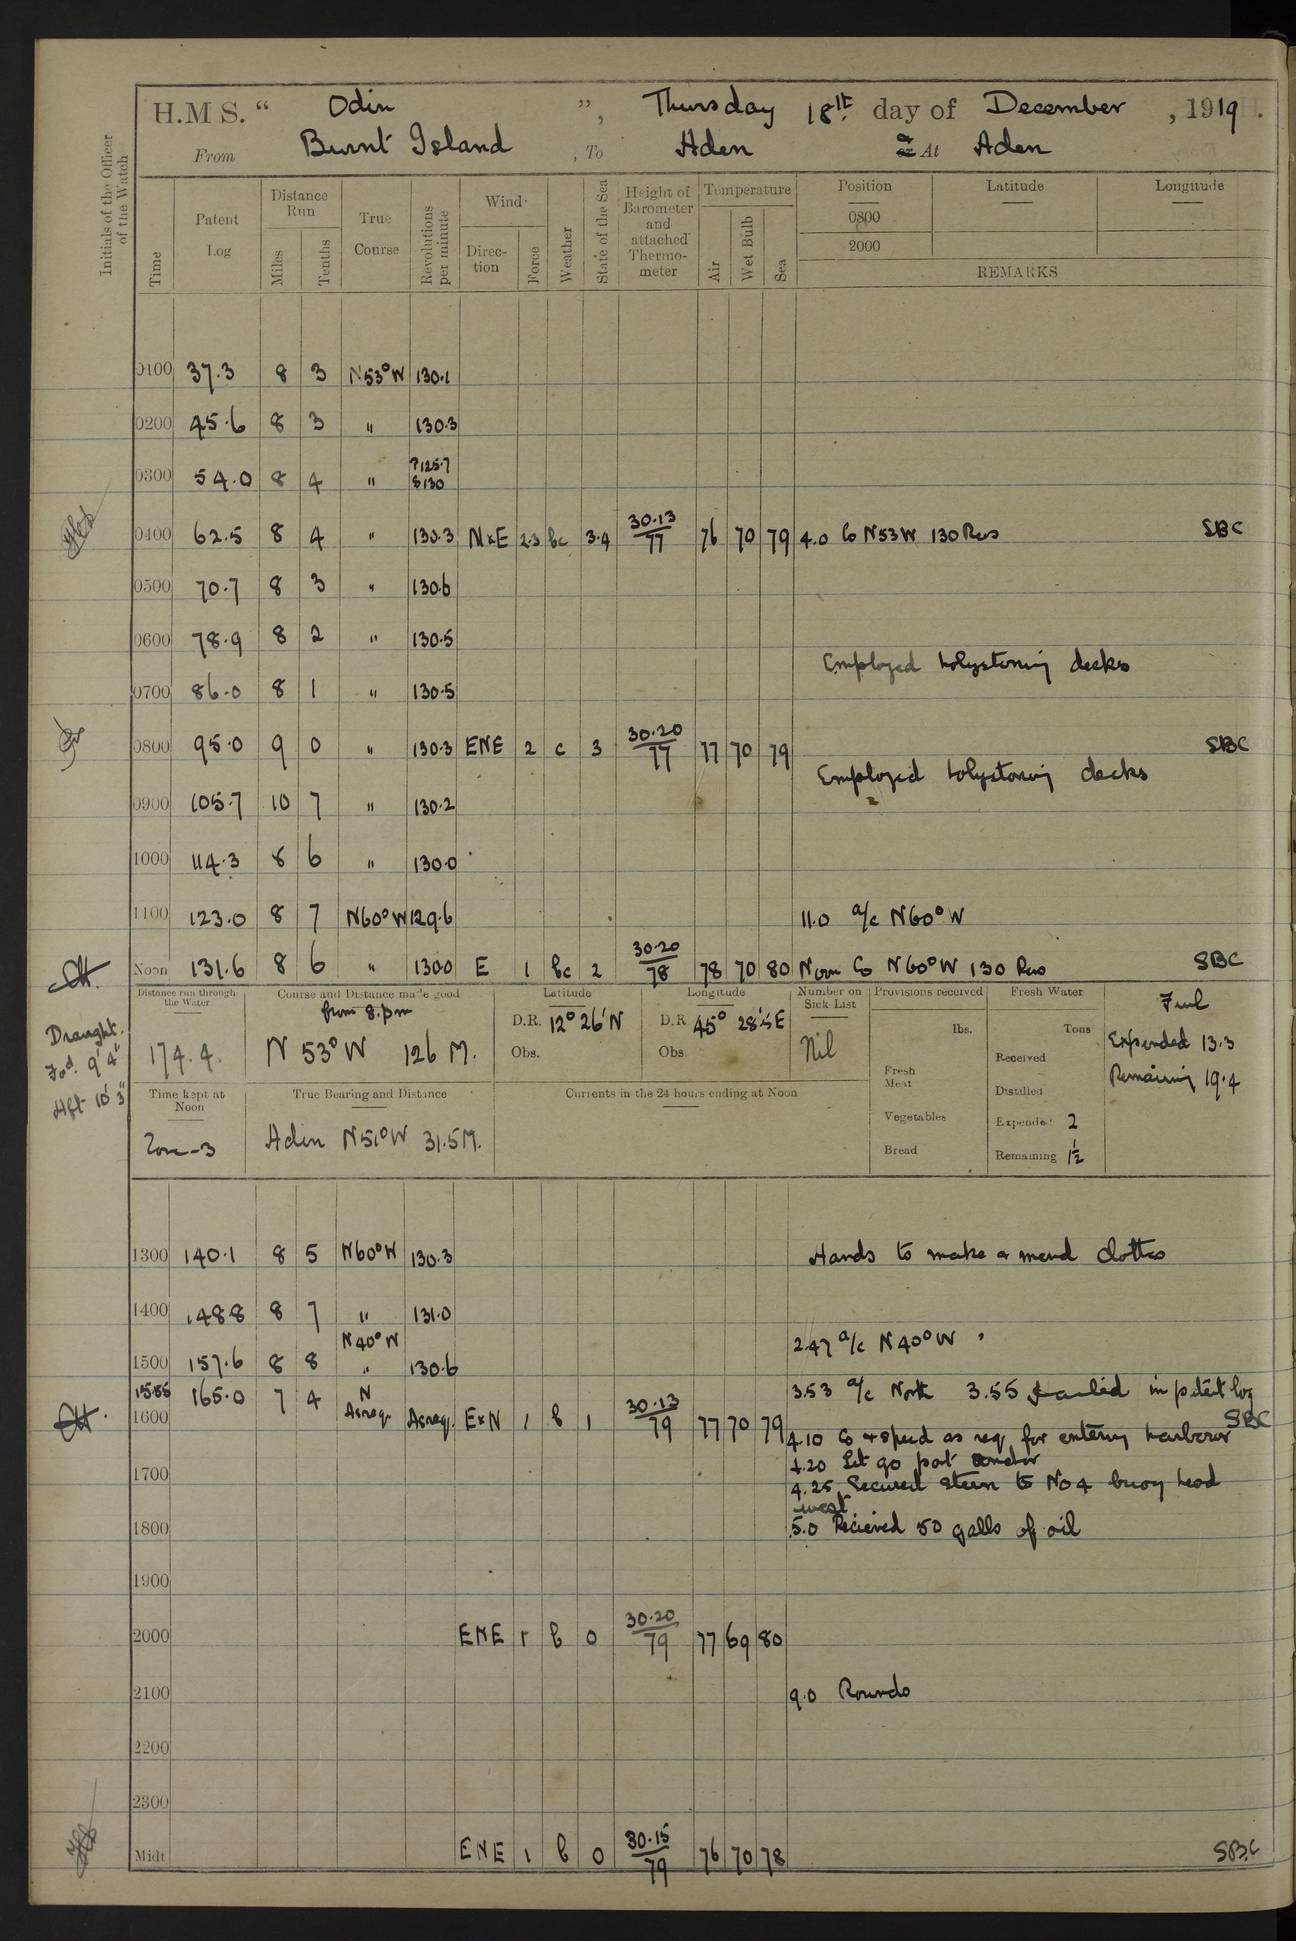 H.M.S. “ Odin ”, Thursday 18th. day of December , 1919.
From Burnt Island , To Aden At Aden
Initials of the Officer of the Watch
Time Patent Log Distance Run Miles Tenths True Course Revolutions per minute Wind Direc-tion Force Weather State of the Sea Height of Barometer and attached Thermo-meter Temperature Air Wet Bulb Sea Position 0800 2000 Latitude Longitude
REMARKS
0100 37.3 8 3 N53°W 130.1
0200 45.6 8 3 " 130.3
0300 54.0 8 4 " P125.7 S130
0400 62.5 8 4 " 130.3 NxE 2.3 bc 3.4 30.13/77 76 70 79 4.0 Co N53W 130 Revs SBC
0500 70.7 8 3 " 130.6
0600 78.9 8 2 " 130.5
Employed holystoning decks
0700 86.0 8 1 " 130.5
0800 95.0 9 0 " 130.3 ENE 2 c 3 30.20/77 77 70 79 SBC
Employed holystoning decks
0900 105.7 10 7 " 130.2
1000 114.3 8 6 " 130.0
1100 123.0 8 7 N60°W 129.6 11.0 a/c N60°W
Noon 131.6 8 6 " 130.0 E 1 bc 2 30.20/78 78 70 80 Noon Co N60°W 130 Revs SBC
Distance run through the Water 174.4.
Course and Distance made good from 8.pm N 53°W 126 M.
Latitude D.R. 12° 26'N Obs.
Longitude D.R. 45° 28'.5E Obs.
Number on Sick List Nil
Provisions received lbs. Fresh Meat Vegetables Bread
Fresh Water Tons Received Distilled Expended 2 Remaining 1½
Fuel
Expended 13.3
Remaining 19.4
Draught.
Fod. 9' 4"
Aft 10' 3"
Time kept at Noon Zone -3
True Bearing and Distance Aden N51°W 31.5M.
Currents in the 24 hours ending at Noon
1300 140.1 8 5 N60°W 130.3 Hands to make & mend clothes
1400 148.8 8 7 " 131.0
N40°W 2.47 a/c N40°W
1500 157.6 8 8 " 130.6
15.55 165.0 7 4 N 3.53 a/c North 3.55 hauled in patent log
1600 As req. As req. ExN 1 b 1 30.13/79 77 70 79 SBC
4.10 Co & speed as req for entering harbour
4.20 Let go port anchor
1700 4.25 Secured stern to No 4 buoy head
west
1800 5.0 Recieved 50 galls of oil
1900
2000 ENE 1 b 0 30.20/79 77 69 80
2100 9.0 Rounds
2200
2300
Midt ENE 1 b 0 30.15/79 76 70 78 SBC